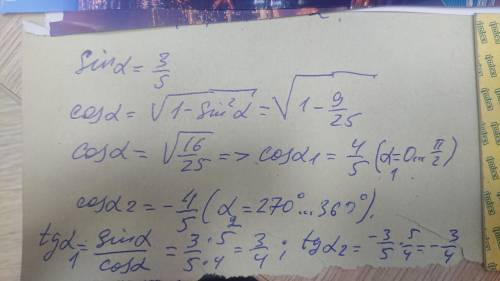 sinα = 3/5
cosα = √(1 - sin²α) = √(1 - 9/25)
cosα = √(16/25) => cosα1 = 4/5 (α1 = 0... π/2)
cosα2 = -4/5 (α2 = 270°...360°).
tgα1 = sinα/cosα = 3/5 · 5/4 = 3/4; tgα2 = -3/5 · 5/4 = -3/4
index